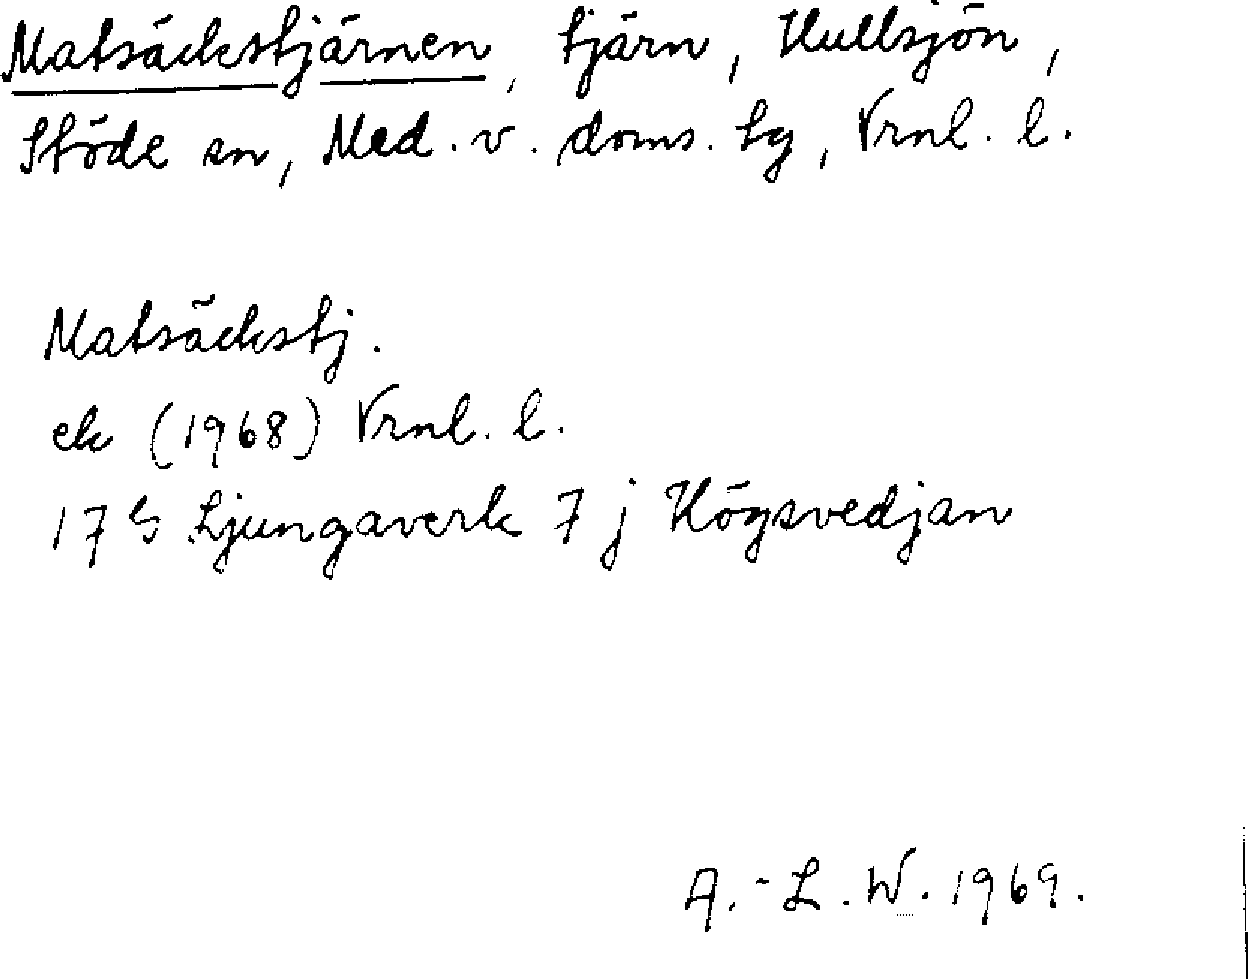 Matsäckstjärnen, tjärn, Hullsjön,
Stöde sn, Med. v. doms. tg, Vrnl. l.
Matsäckstj.
ek (1968) Vrnl. l.
17 G Ljungaverk 7 j Högsvedjan
A.-L. W. 1969.